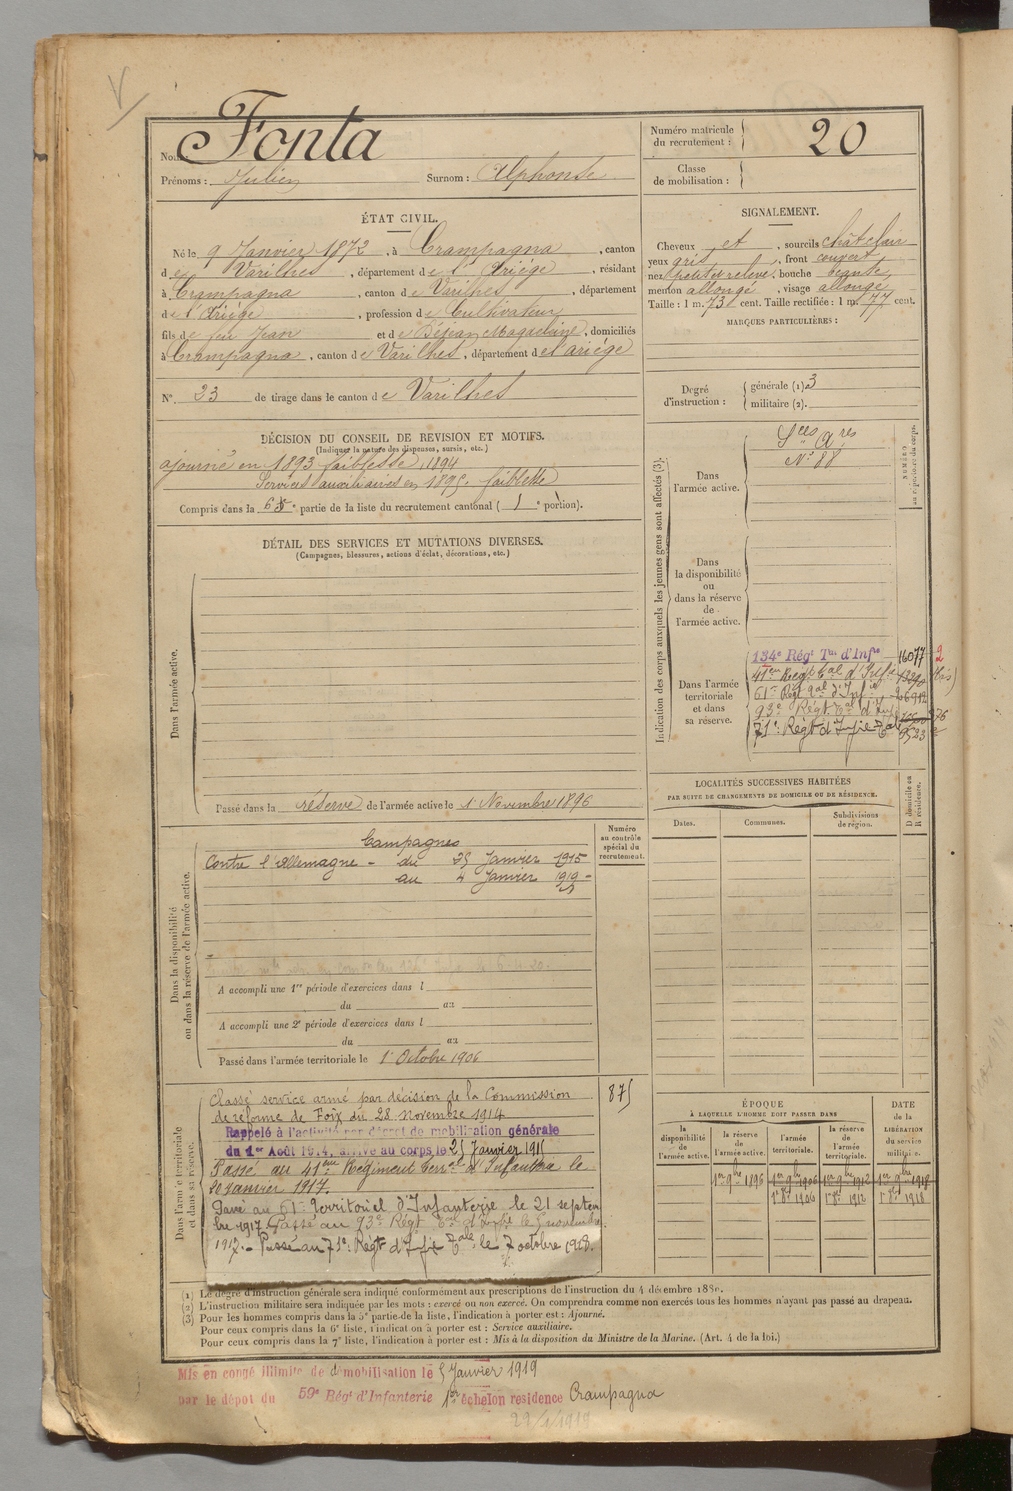 Nom : Fonta
Prénoms : Julien Surnom : Alphonse
Numéro matricule du recrutement : 20
Classe de mobilisation :
ÉTAT CIVIL.
Né le 9 Janvier 1872, à Crampagna, canton
de Varilhes, département de l'Ariége, résidant
à Crampagna, canton de Varilhes, département
de l'Ariége, profession de Cultivateur
fils de feu Jean et de Magdelaine, domiciliés
à Crampagna, canton de Varilhes, département de l'ariége
N° 23 de tirage dans le canton de Varilhes
SIGNALEMENT.
Cheveux et, sourcils châtelain
yeux gris, front couvert
nez petit et relevé, bouche béante
menton allongé, visage allongé
Taille : 1 m. 73 cent. Taille rectifiée : 1 m. 77 cent.
MARQUES PARTICULIÈRES :
Degré d'instruction : générale (1) 3
militaire (2).
DÉCISION DU CONSEIL DE REVISION ET MOTIFS.
(Indiquer la nature des dispenses, sursis, etc.)
ajourné en 1893 faiblesse, 1894
Services auxiliaires en 1895. faiblesse
Compris dans la 6e partie de la liste du recrutement cantonal (1e portion).
DÉTAIL DES SERVICES ET MUTATIONS DIVERSES.
(Campagnes, blessures, actions d'éclat, décorations, etc.)
Dans l'armée active.
Passé dans la réserve de l'armée active le 1 Novembre 1896
Indication des corps auxquels les jeunes gens sont affectés (3).
NUMÉRO au répertoire du corps.
Dans l'armée active.
Sces Ares
N° 88
Dans la disponibilité ou dans la réserve de l'armée active.
Dans l'armée territoriale et dans sa réserve.
134e Régt Tal d'Infie 16077 2
41eme Régt tal d'Infie
61e Régt tal d'Infie
93e Régt tal d'Infie
71e Régt d'Infie Tale 9523
LOCALITÉS SUCCESSIVES HABITÉES
PAR SUITE DE CHANGEMENTS DE DOMICILE OU DE RÉSIDENCE.
Dates. Communes. Subdivisions de région. D domicile ou R résidence.
Dans la disponibilité ou dans la réserve de l'armée active.
Numéro au contrôle spécial du recrutement.
Campagnes
Contre l'Allemagne - du 25 Janvier 1915
au 4 Janvier 1919 -
A accompli une 1re période d'exercices dans l
du au
A accompli une 2e période d'exercices dans l
du au
Passé dans l'armée territoriale le 1er Octobre 1906
Dans l'armée territoriale et dans sa réserve.
classé service armé par décision de la Commission 875
de réforme de Foix du 28 novembre 1914
Rappelé à l'activité par décret de mobilisation générale
du 1er Août 1914, arrivé au corps le 25 Janvier 1915
Passé au 41eme Régiment Terral d'Infanterie le
20 janvier 1917.
Passé au 61e Territoriel d'Infanterie le 21 septem
bre 1917. Passé au 93e Régt Tal d'Infie le 5 novembre
1917. - Passé au 71e Régt d'Infie Tale, le 7 octobre 1918.
ÉPOQUE
À LAQUELLE L'HOMME DOIT PASSER DANS
la disponibilité de l'armée active. la réserve de l'armée active. l'armée territoriale. la réserve de l'armée territoriale.
DATE de la LIBÉRATION du service militaire.
1er 9bre 1896 1er 9bre 1906 1er 9bre 1912 1er 9bre 1918
1er 8bre 1906 1er 8bre 1912 1er 8bre 1918
(1) Le degré d'instruction générale sera indiqué conformément aux prescriptions de l'instruction du 4 décembre 1889.
(2) L'instruction militaire sera indiquée par les mots : exercé ou non exercé. On comprendra comme non exercés tous les hommes n'ayant pas passé au drapeau.
(3) Pour les hommes compris dans la 5e partie de la liste, l'indication à porter est : Ajourné.
Pour ceux compris dans la 6e liste, l'indication à porter est : Service auxiliaire.
Pour ceux compris dans la 7e liste, l'indication à porter est : Mis à la disposition du Ministre de la Marine. (Art. 4 de la loi.)
Mis en congé illimité de démobilisation le 5 Janvier 1919
par le dépôt du 59e Régt d'Infanterie 1er échelon résidence Crampagna